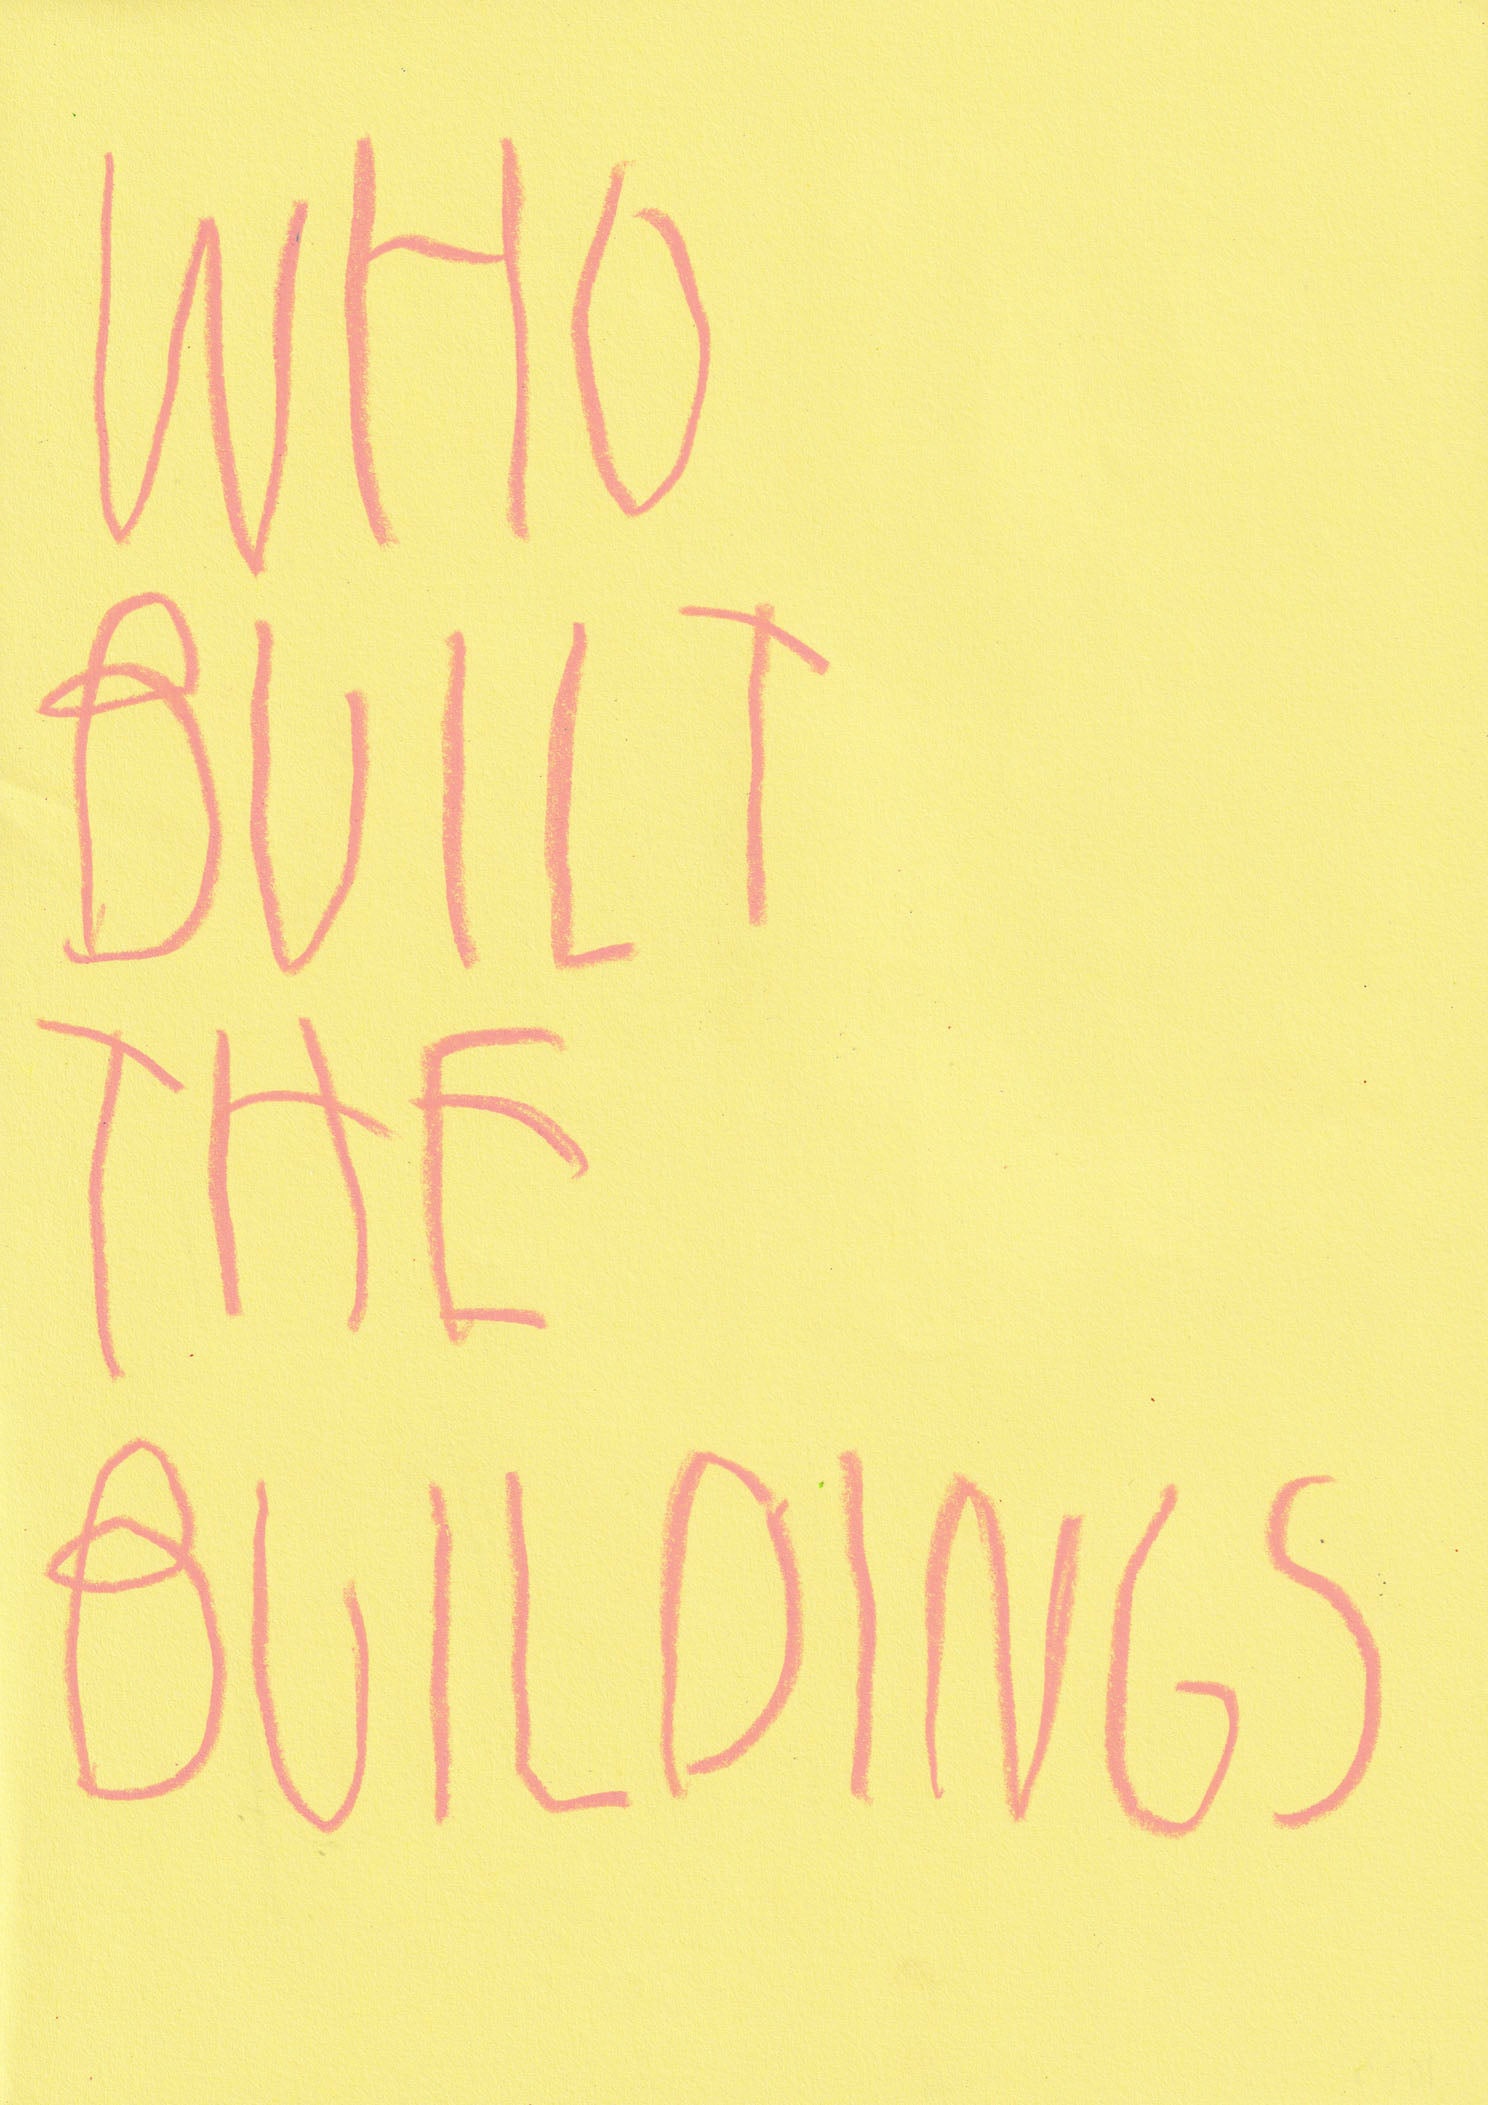 WHO
BUILT
THE
BUILDINGS